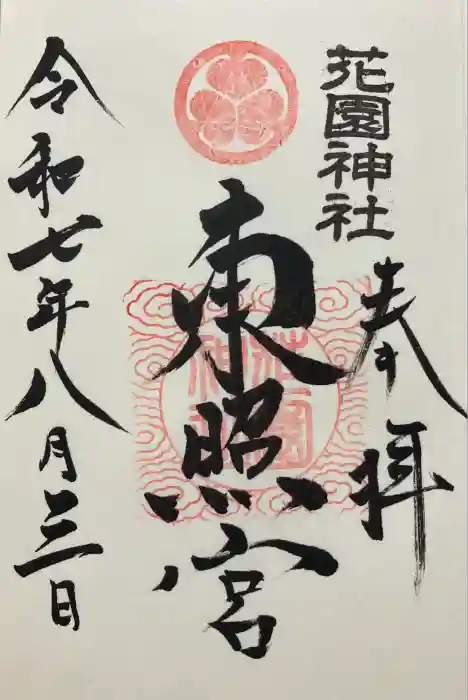 花園神社
奉拝
東照宮
花園神社
令和七年八月三日